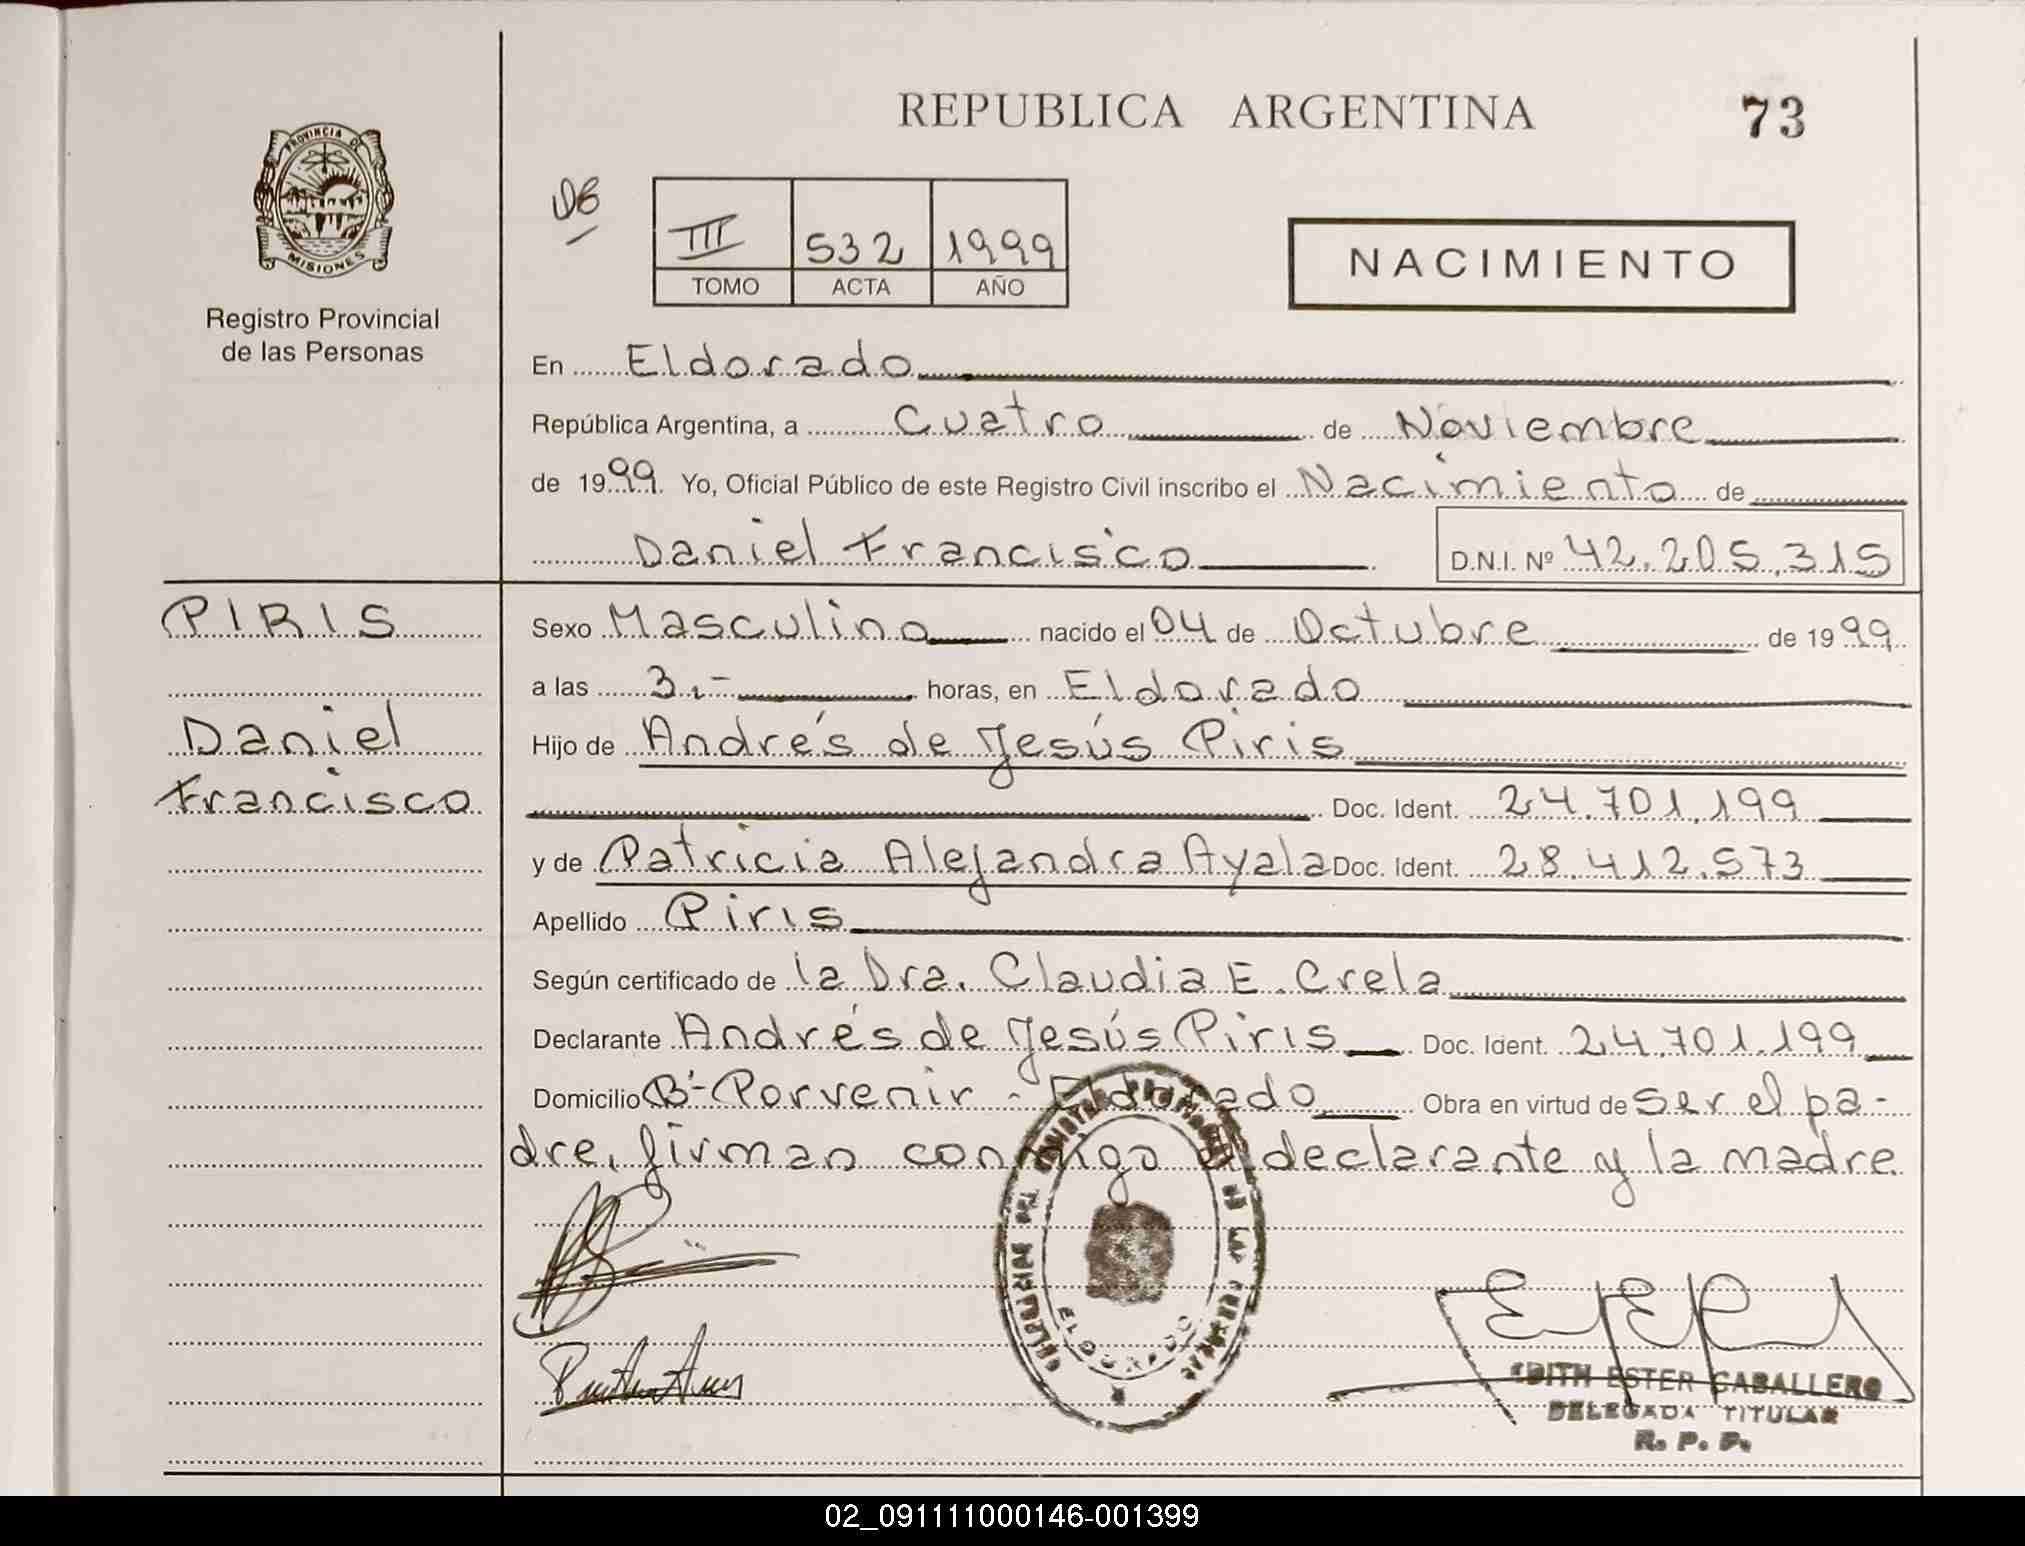 REPUBLICA ARGENTINA
73
PROVINCIA DE
MISIONES
Registro Provincial
de las Personas
III 532 1999
TOMO ACTA AÑO
NACIMIENTO
En Eldorado
República Argentina, a Cuatro de Noviembre
de 1999. Yo, Oficial Público de este Registro Civil inscribo el Nacimiento de
Daniel Francisco D.N.I. Nº 42.205.315
PIRIS
Daniel
Francisco
Sexo Masculino nacido el 04 de Octubre de 1999
a las 3.- horas, en Eldorado
Hijo de Andrés de Jesús Piris
Doc. Ident. 24.701.199
y de Patricia Alejandra Ayala Doc. Ident. 28.412.573
Apellido Piris
Según certificado de la Dra. Claudia E. Crela
Declarante Andrés de Jesús Piris Doc. Ident. 24.701.199
Domicilio Bº Porvenir - Eldorado Obra en virtud de ser el pa-
dre, firman conmigo el declarante y la madre
ELDORADO
EDITH ESTER CABALLERO
DELEGADA TITULAR
R. P. P.
02_091111000146-001399